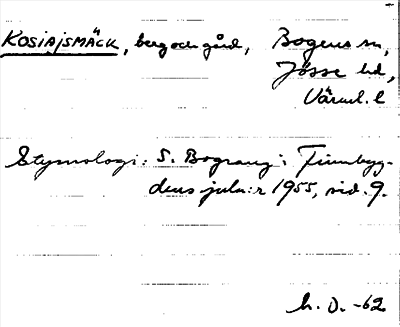 KOSIAJSMÄCK, berg och gård, Bogens sn,
Jösse hd,
Värml. l
Etymologi: S. Bograng i Finnbyg-
dens jula:r 1955, sid. 9.
h. D. -62